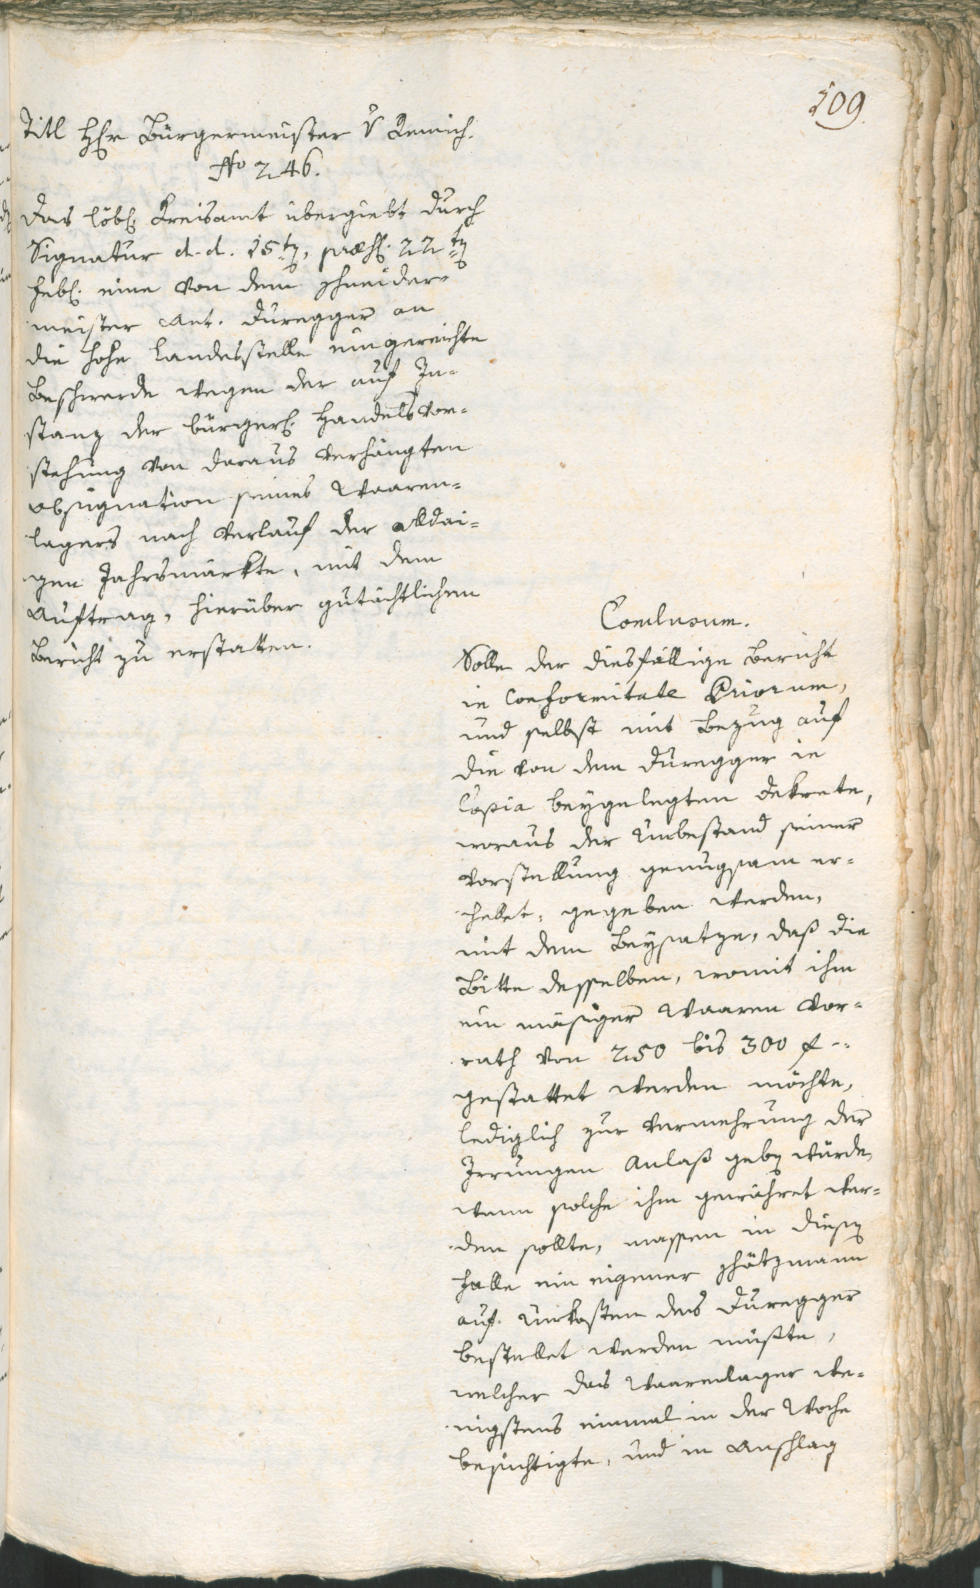 109.
Titl Hr Bürgermeister v Remich.
No 246.
Das löbl. Kreisamt übergiebt durch
Signatur d. d. 15ten, præs. 22ten
Febr. eine von dem Schneider-
meister Ant. Duregger an
die hohe Landesstelle eingereichte
Beschwerde wegen der auf In-
stanz der bürgerl. Handelsvor-
stehung von daraus verhängten
Obsignation seines Waaren-
lagers nach Verlauf der alldai-
gen Jahrsmärkte, mit dem
Auftrag, hierüber gutächtlichen
Bericht zu erstatten.
Conclusum.
Solle der diesfällige Bericht
in Conformitate Priorum,
und selbst mit Bezug auf
die von dem Duregger in
Copia beygelegten Dekrete,
woraus der Unbestand seiner
Vorstellung genugsam er-
hellet, gegeben werden,
mit dem Beysatze, daß die
Bitte desselben, womit ihm
ein mäßiger Waaren Vor-
rath von 250 bis 300 f --
gestattet werden möchte,
lediglich zur Vermehrung der
Irrungen Anlaß geben würde,
wenn solche ihm gewähret wer-
den sollte, massen in diesen
Falle ein eigener Schätzmann
auf Unkosten des Duregger
bestellet werden müßte,
welcher das Waarenlager we-
nigstens einmal in der Woche
besichtigte, und in Anschlag